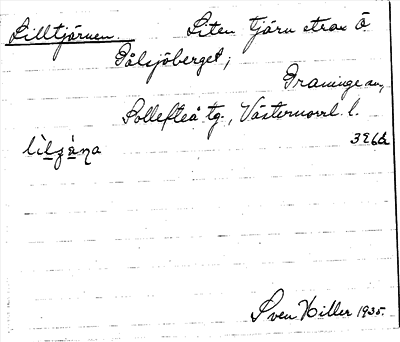 Lilltjärnen. Liten tjärn strax Ö
Pålsjöberget;
Graninge sn,
Sollefteå tg., Västernorrl. l.
lìlʒä̀ṇa 3266
Sven Hiller 1935.